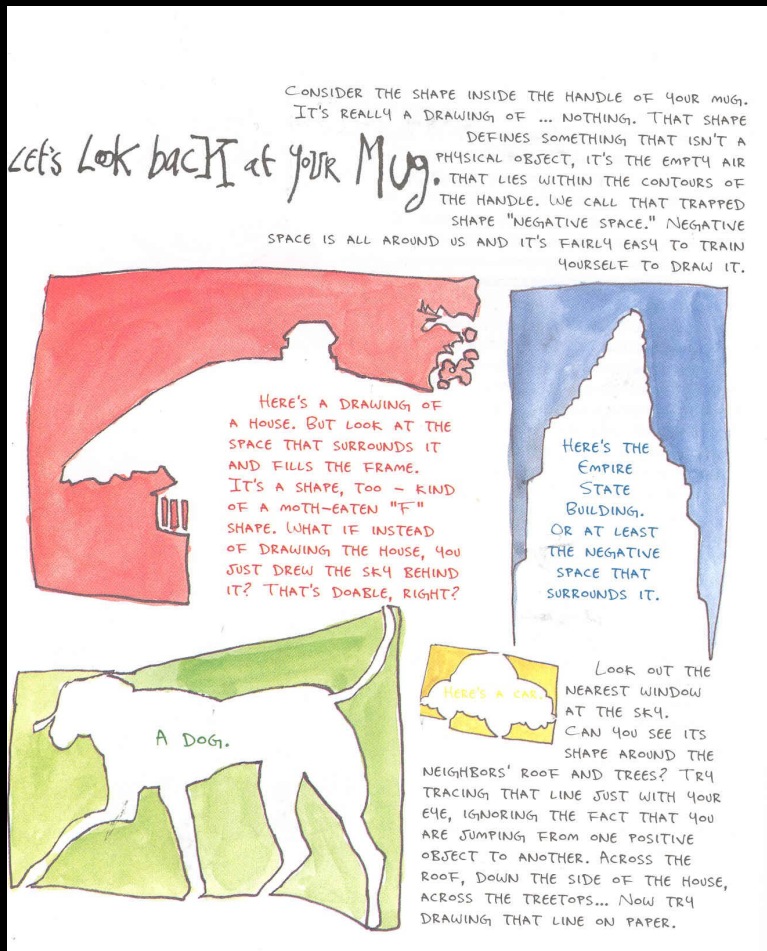 CONSIDER THE SHAPE INSIDE THE HANDLE OF YOUR MUG.
IT'S REALLY A DRAWING OF ... NOTHING. THAT SHAPE
DEFINES SOMETHING THAT ISN'T A
PHYSICAL OBJECT, IT'S THE EMPTY AIR
THAT LIES WITHIN THE CONTOURS OF
THE HANDLE. WE CALL THAT TRAPPED
SHAPE "NEGATIVE SPACE." NEGATIVE
SPACE IS ALL AROUND US AND IT'S FAIRLY EASY TO TRAIN
YOURSELF TO DRAW IT.
LET'S LOOK back at YOUR MUg.
HERE'S A DRAWING OF
A HOUSE. BUT LOOK AT THE
SPACE THAT SURROUNDS IT
AND FILLS THE FRAME.
IT'S A SHAPE, TOO – KIND
OF A MOTH-EATEN "F"
SHAPE. WHAT IF INSTEAD
OF DRAWING THE HOUSE, YOU
JUST DREW THE SKY BEHIND
IT? THAT'S DOABLE, RIGHT?
HERE'S THE
EMPIRE
STATE
BUILDING.
OR AT LEAST
THE NEGATIVE
SPACE THAT
SURROUNDS IT.
A DOG.
HERE'S A CAR.
LOOK OUT THE
NEAREST WINDOW
AT THE SKY.
CAN YOU SEE ITS
SHAPE AROUND THE
NEIGHBORS' ROOF AND TREES? TRY
TRACING THAT LINE JUST WITH YOUR
EYE, IGNORING THE FACT THAT YOU
ARE JUMPING FROM ONE POSITIVE
OBJECT TO ANOTHER. ACROSS THE
ROOF, DOWN THE SIDE OF THE HOUSE,
ACROSS THE TREETOPS... NOW TRY
DRAWING THAT LINE ON PAPER.